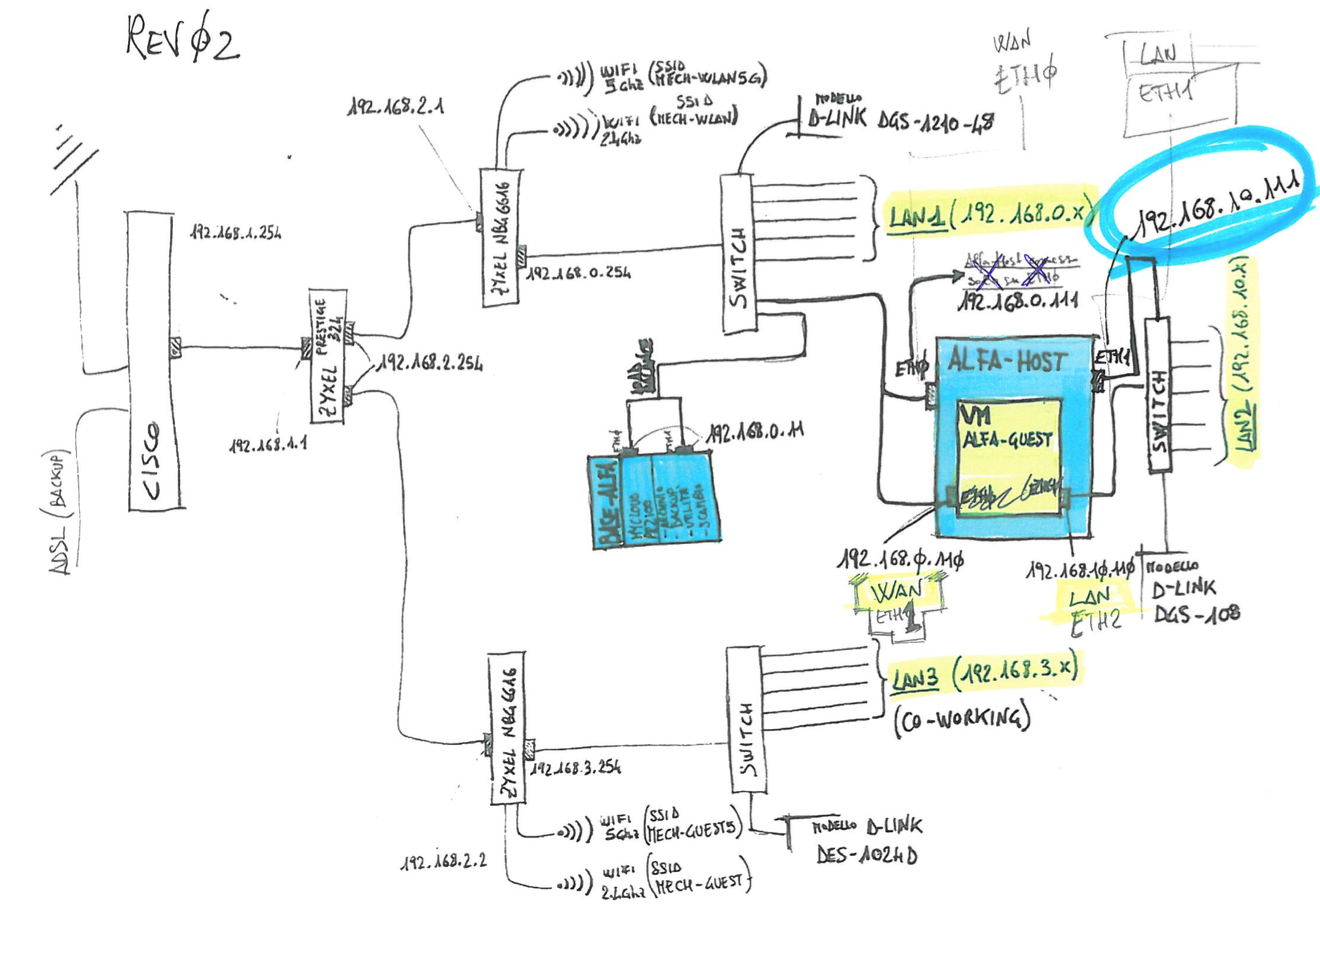 REVØ2
WAN
ETHØ
LAN
ETH1
192.168.2.1
WIFI
5Ghz
(SSID
MECH-WLAN5G)
WIFI
2.4Ghz
(SSID
MECH-WLAN)
MODELLO
D-LINK DGS-1210-48
192.168.10.111
192.168.1.254
ZYXEL NBG6616
192.168.0.254
SWITCH
LAN1 (192.168.0.x)
192.168.0.111
ZYXEL PRESTIGE
324
192.168.2.254
192.168.1.1
CISCO
ADSL (BACKUP)
LOAD
BALANCE
192.168.0.11
BASE-ALFA
- BACKUP
ETHØ
ALFA-HOST
ETH1
VM
ALFA-GUEST
SWITCH
LAN2 (192.168.10.x)
192.168.Ø.11Ø
WAN
192.168.1Ø.11Ø
LAN
ETH2
MODELLO
D-LINK
DGS-108
ZYXEL NBG6616
192.168.3.254
SWITCH
LAN3 (192.168.3.x)
(CO-WORKING)
WIFI
5Ghz
(SSID
MECH-GUEST5)
192.168.2.2
WIFI
2.4Ghz
(SSID
MECH-GUEST)
MODELLO D-LINK
DES-1024D